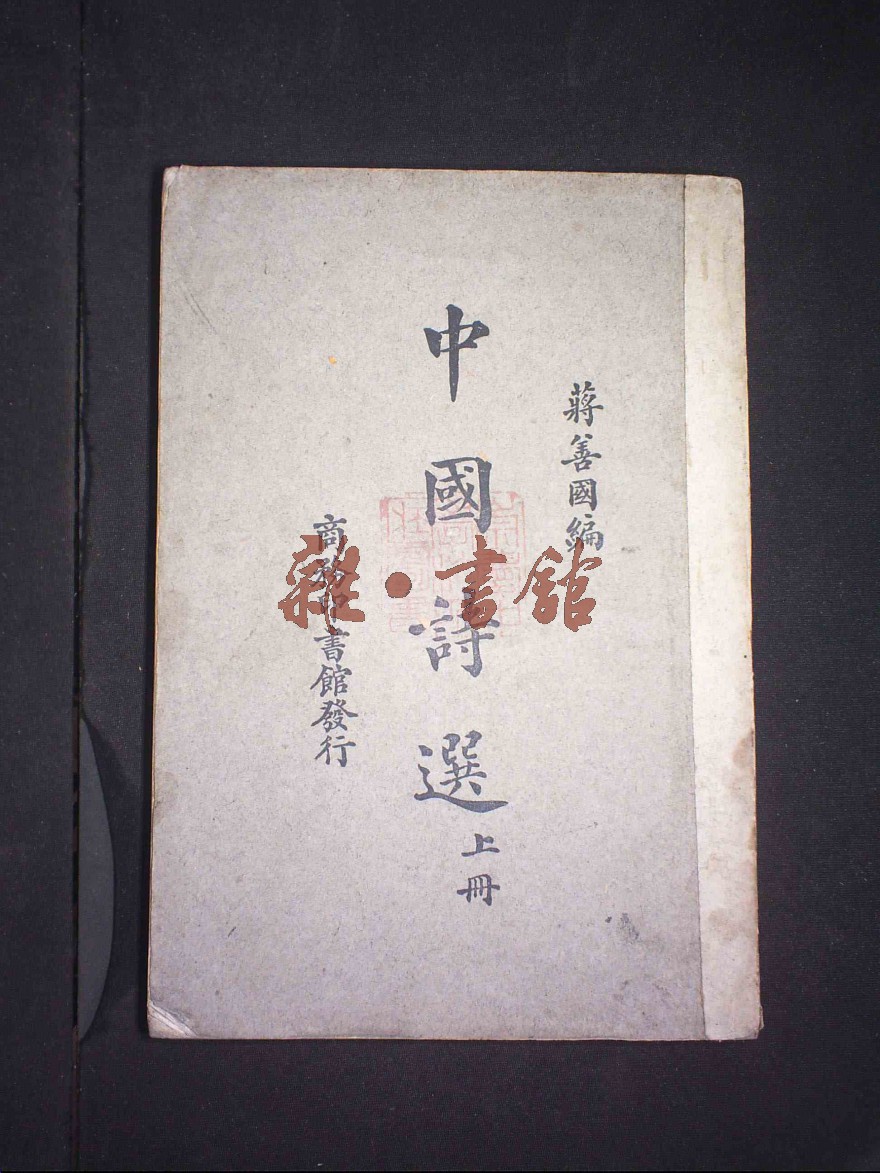 蔣善國編
中國詩選
上冊
商務印書館發行
雜·書館